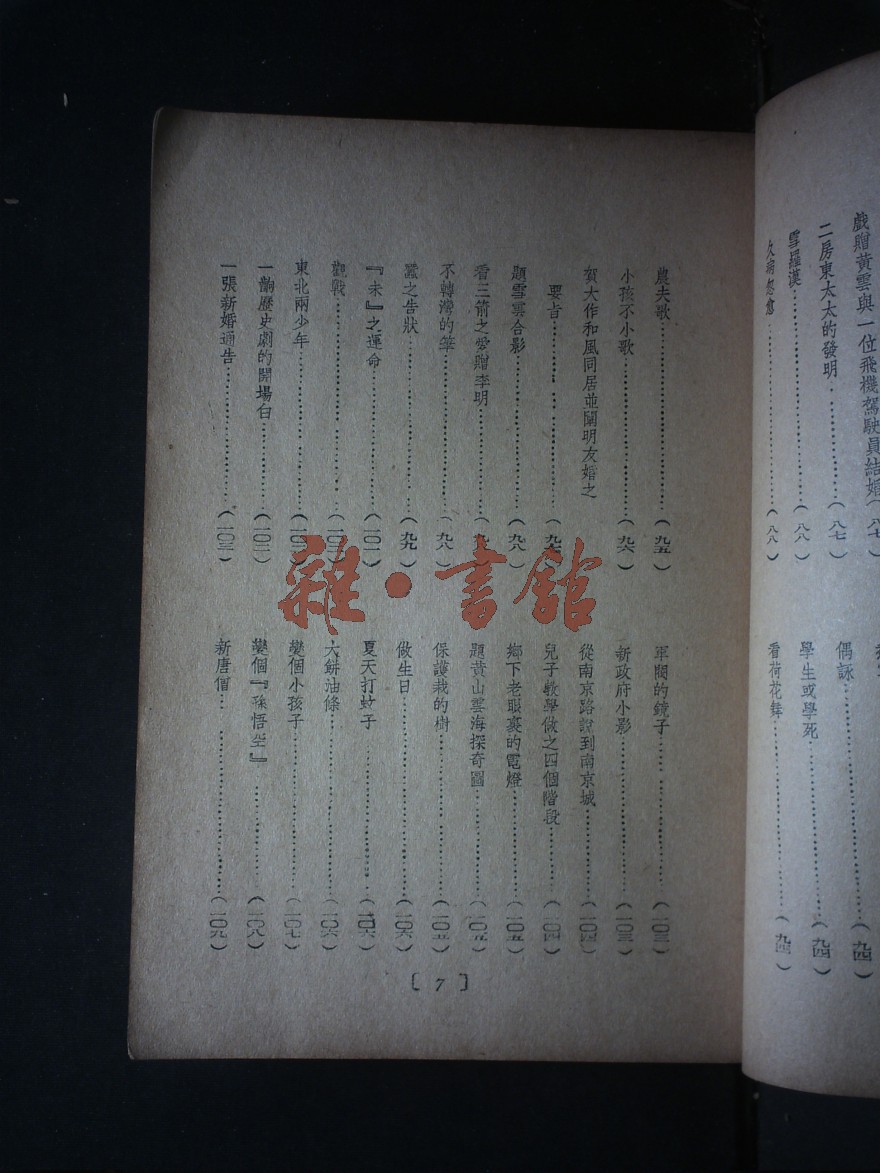 戲贈黃雲與一位飛機駕駛員結婚(八七)
二房東太太的發明…………(八七)
雪羅漢…………(八八)
久病忽愈…………(八八)
偶詠…………(九四)
學生或學死…………(九四)
看荷花舞…………(九四)
農夫歌…………(九五)
小孩不小歌…………(九六)
賀大作和風同居並闡明友婚之
要旨…………(九七)
題雪雲合影…………(九八)
看三箭之愛贈李明…………
不轉灣的筆…………(九八)
蠶之告狀…………(九九)
『未』之運命…………(一〇一)
觀戰…………
東北兩少年…………
一齣歷史劇的開場白…………(一〇二)
一張新婚通告…………(一〇三)
軍閥的鏡子…………(一〇三)
新政府小影…………(一〇三)
從南京路說到南京城…………(一〇四)
兒子教學做之四個階段…………(一〇四)
鄉下老眼裏的電燈…………(一〇五)
題黃山雲海探奇圖…………(一〇五)
保護栽的樹…………(一〇五)
做生日…………(一〇六)
夏天打蚊子…………(一〇六)
大餅油條…………(一〇六)
變個小孩子…………(一〇七)
變個『孫悟空』…………(一〇八)
新唐僧…………(一〇九)
〔7〕
雜·書館